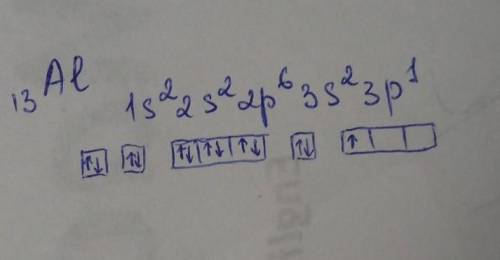 ₁₃Al 1s²2s²2p⁶3s²3p¹
↑↓ ↑↓ ↑↓ ↑↓ ↑↓ ↑↓ ↑